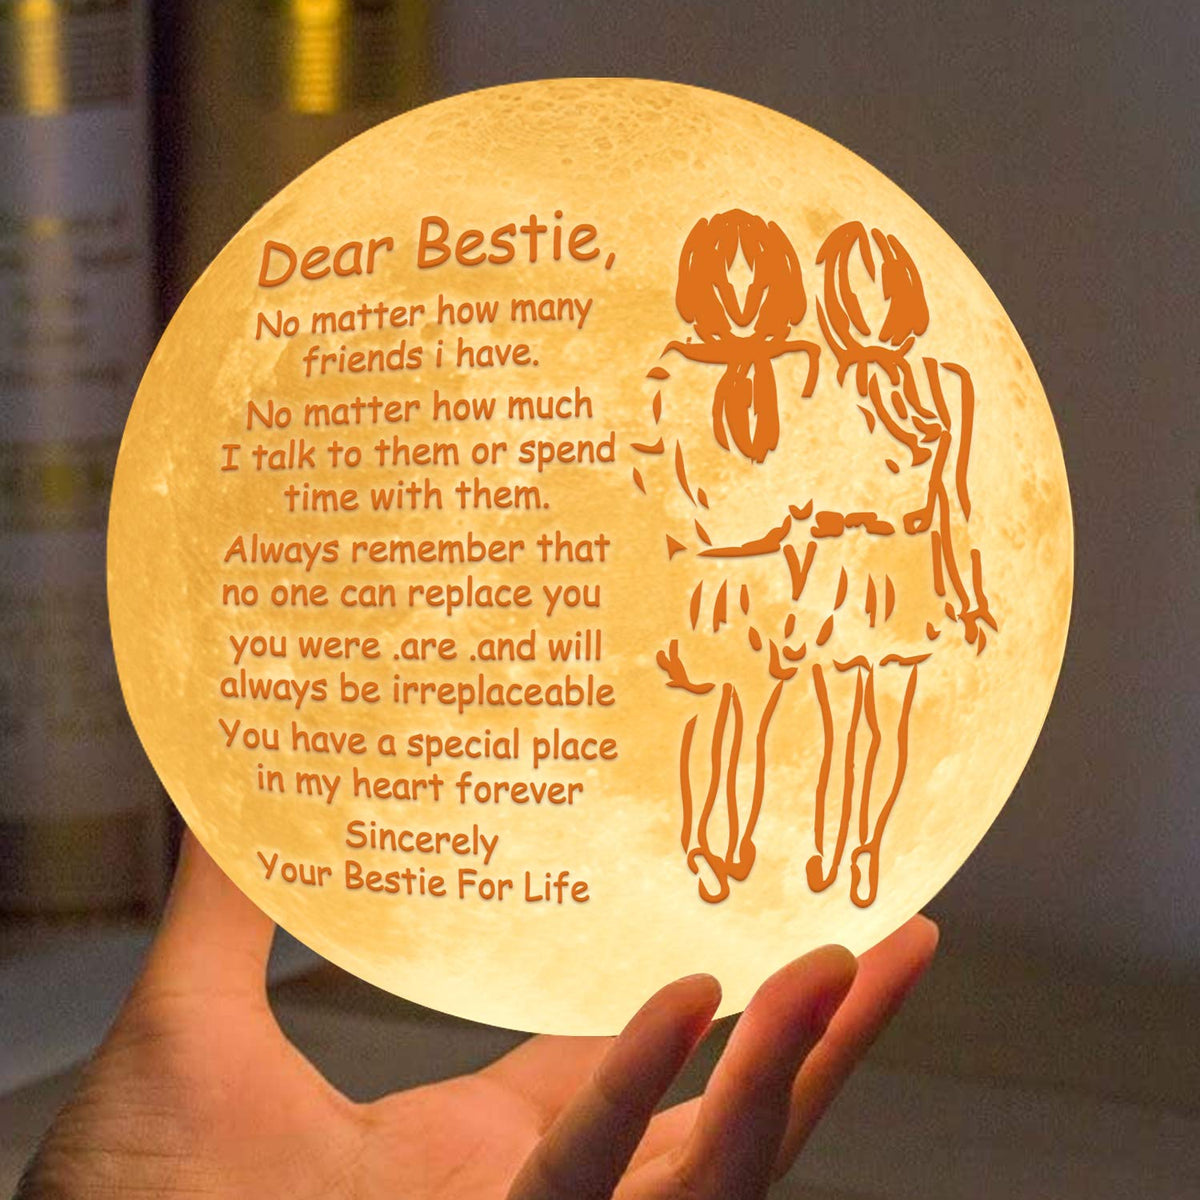 Dear Bestie,
No matter how many
friends i have.
No matter how much
I talk to them or spend
time with them.
Always remember that
no one can replace you
you were .are .and will
always be irreplaceable
You have a special place
in my heart forever
Sincerely
Your Bestie For Life